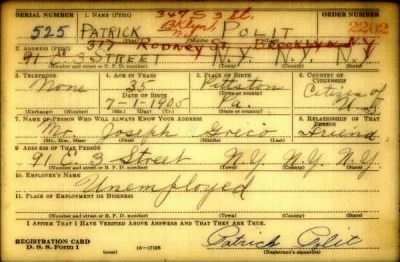 SERIAL NUMBER 1. NAME (Print) 347 S. 3 St. ORDER NUMBER
525 PATRICK Bklyn NY POLIT 2202
(First) (Middle) (Last)
377 RODNEY St BROOKLYN N.Y
2. ADDRESS (Print)
91 E. 3 STREET N.Y. N.Y. N.Y.
(Number and street or R. F. D. number) (Town) (County) (State)
3. TELEPHONE 4. AGE IN YEARS 5. PLACE OF BIRTH 6. COUNTRY OF CITIZENSHIP
None 35 Pittston Citizen of
DATE OF BIRTH
7-1-1905 Pa. U-S
(Exchange) (Number) (Mo.) (Day) (Yr.) (State or county)
7. NAME OF PERSON WHO WILL ALWAYS KNOW YOUR ADDRESS 8. RELATIONSHIP OF THAT PERSON
Mr. Joseph Greco Friend
(Mr., Mrs., Miss) (First) (Middle) (Last)
9. ADDRESS OF THAT PERSON
91 E. 3 Street N.Y. N.Y. N.Y.
(Number and street or R. F. D. number) (Town) (County) (State)
10. EMPLOYER'S NAME
Unemployed
11. PLACE OF EMPLOYMENT OR BUSINESS
(Number and street or R. F. D. number) (Town) (County) (State)
I AFFIRM THAT I HAVE VERIFIED ABOVE ANSWERS AND THAT THEY ARE TRUE.
REGISTRATION CARD Patrick Polit
D. S. S. Form 1 (over) 16-17105 (Registrant's signature)